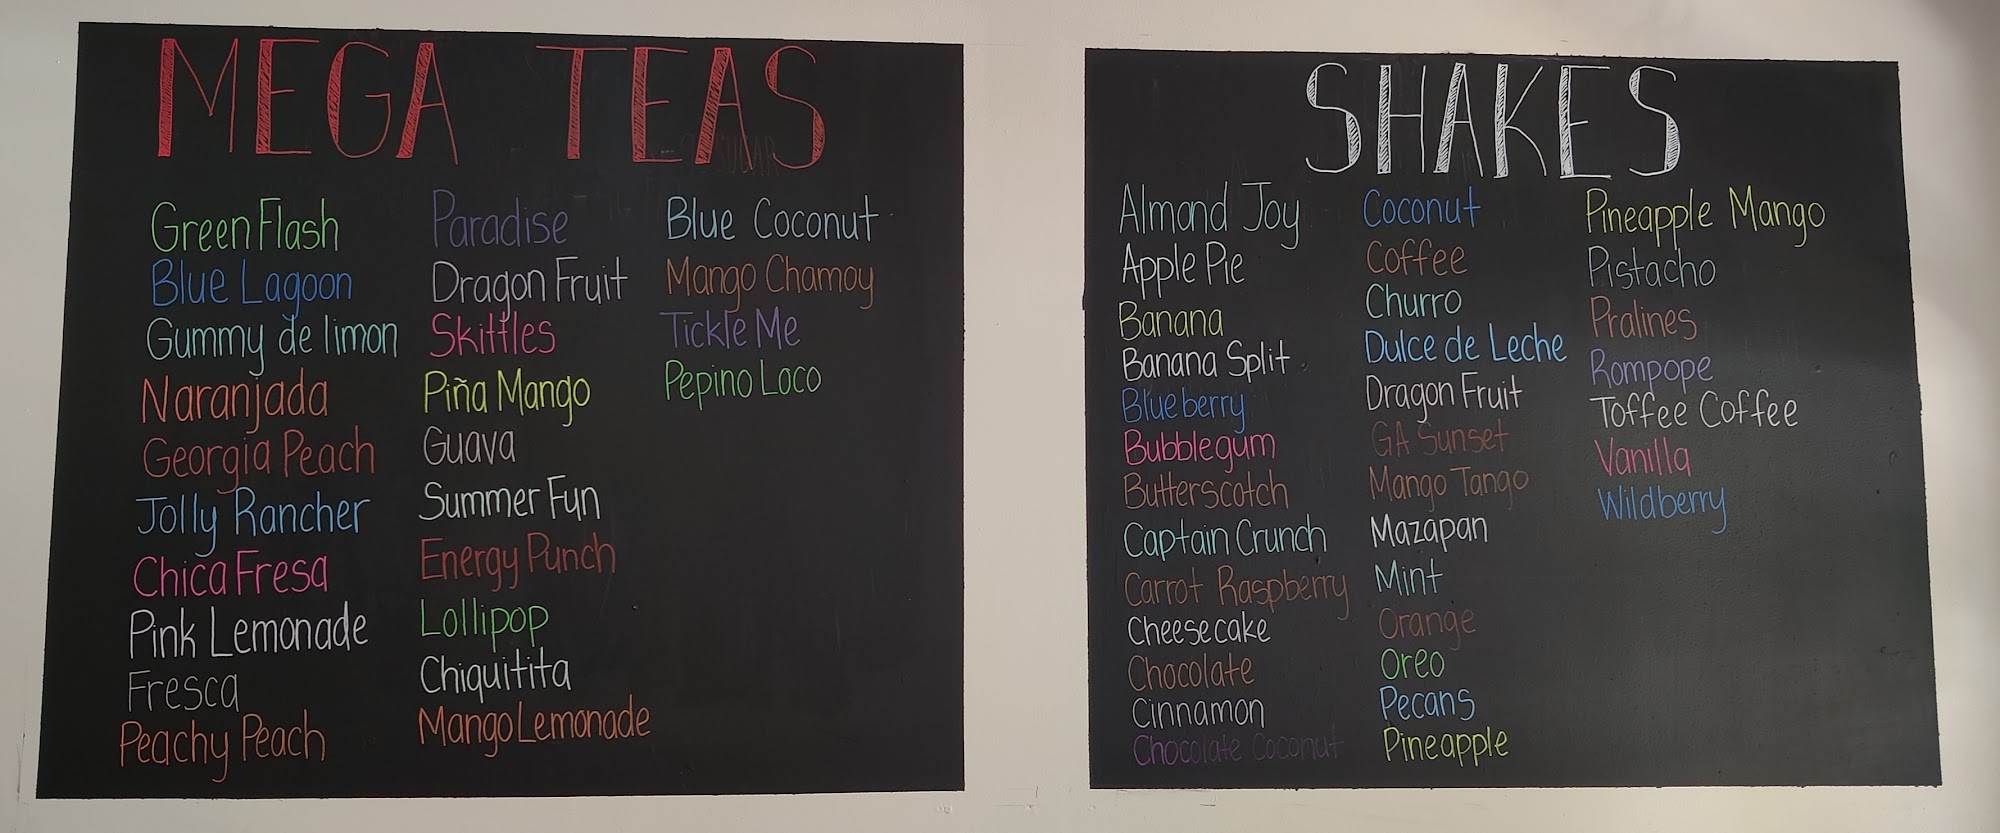 MEGA TEAS
Green Flash
Blue Lagoon
Gummy de limon
Naranjada
Georgia Peach
Jolly Rancher
Chica Fresa
Pink Lemonade
Fresca
Peachy Peach
Paradise
Dragon Fruit
Skittles
Piña Mango
Guava
Summer Fun
Energy Punch
Lollipop
Chiquitita
Mango Lemonade
Blue Coconut
Mango Chamoy
Tickle Me
Pepino Loco
SHAKES
Almond Joy
Apple Pie
Banana
Banana Split
Blueberry
Bubblegum
Butterscotch
Captain Crunch
Carrot Raspberry
Cheesecake
Chocolate
Cinnamon
Chocolate Coconut
Coconut
Coffee
Churro
Dulce de Leche
Dragon Fruit
GA Sunset
Mango Tango
Mazapan
Mint
Orange
Oreo
Pecans
Pineapple
Pineapple Mango
Pistacho
Pralines
Rompope
Toffee Coffee
Vanilla
Wildberry